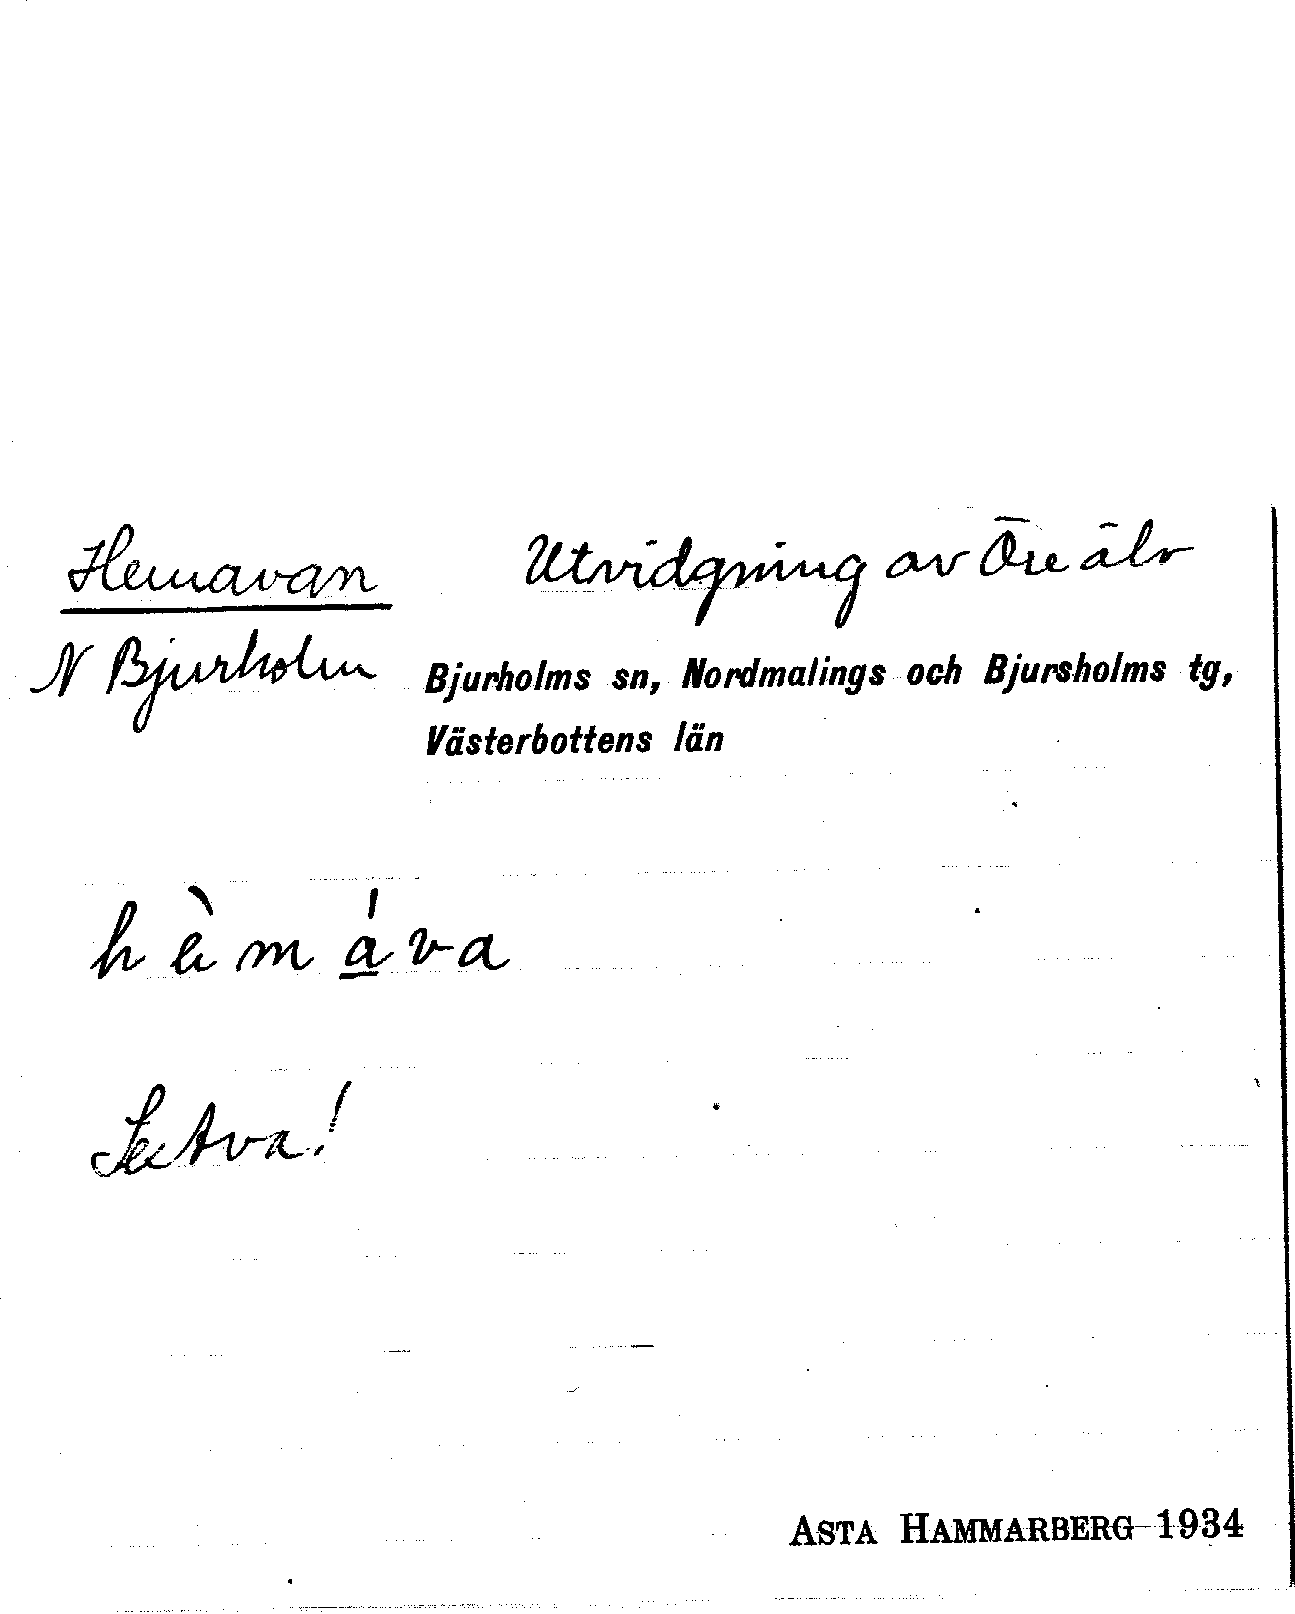 Hemavan Utvidgning av Öre älv
N Bjurholm Bjurholms sn, Nordmalings och Bjursholms tg,
Västerbottens län
hèmáva
Se Ava!
ASTA HAMMARBERG 1934